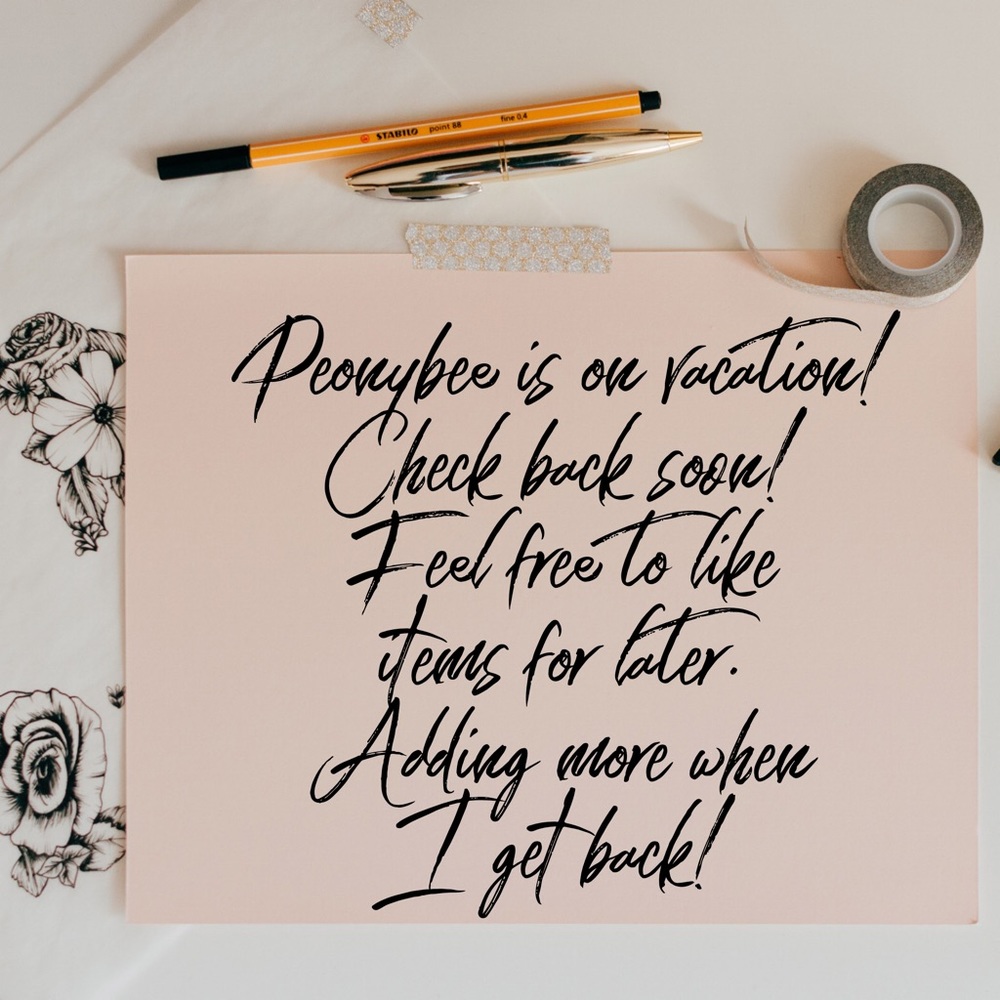 STABILO point 88 fine 0,4
Peonybee is on vacation!
Check back soon!
Feel free to like
items for later.
Adding more when
I get back!